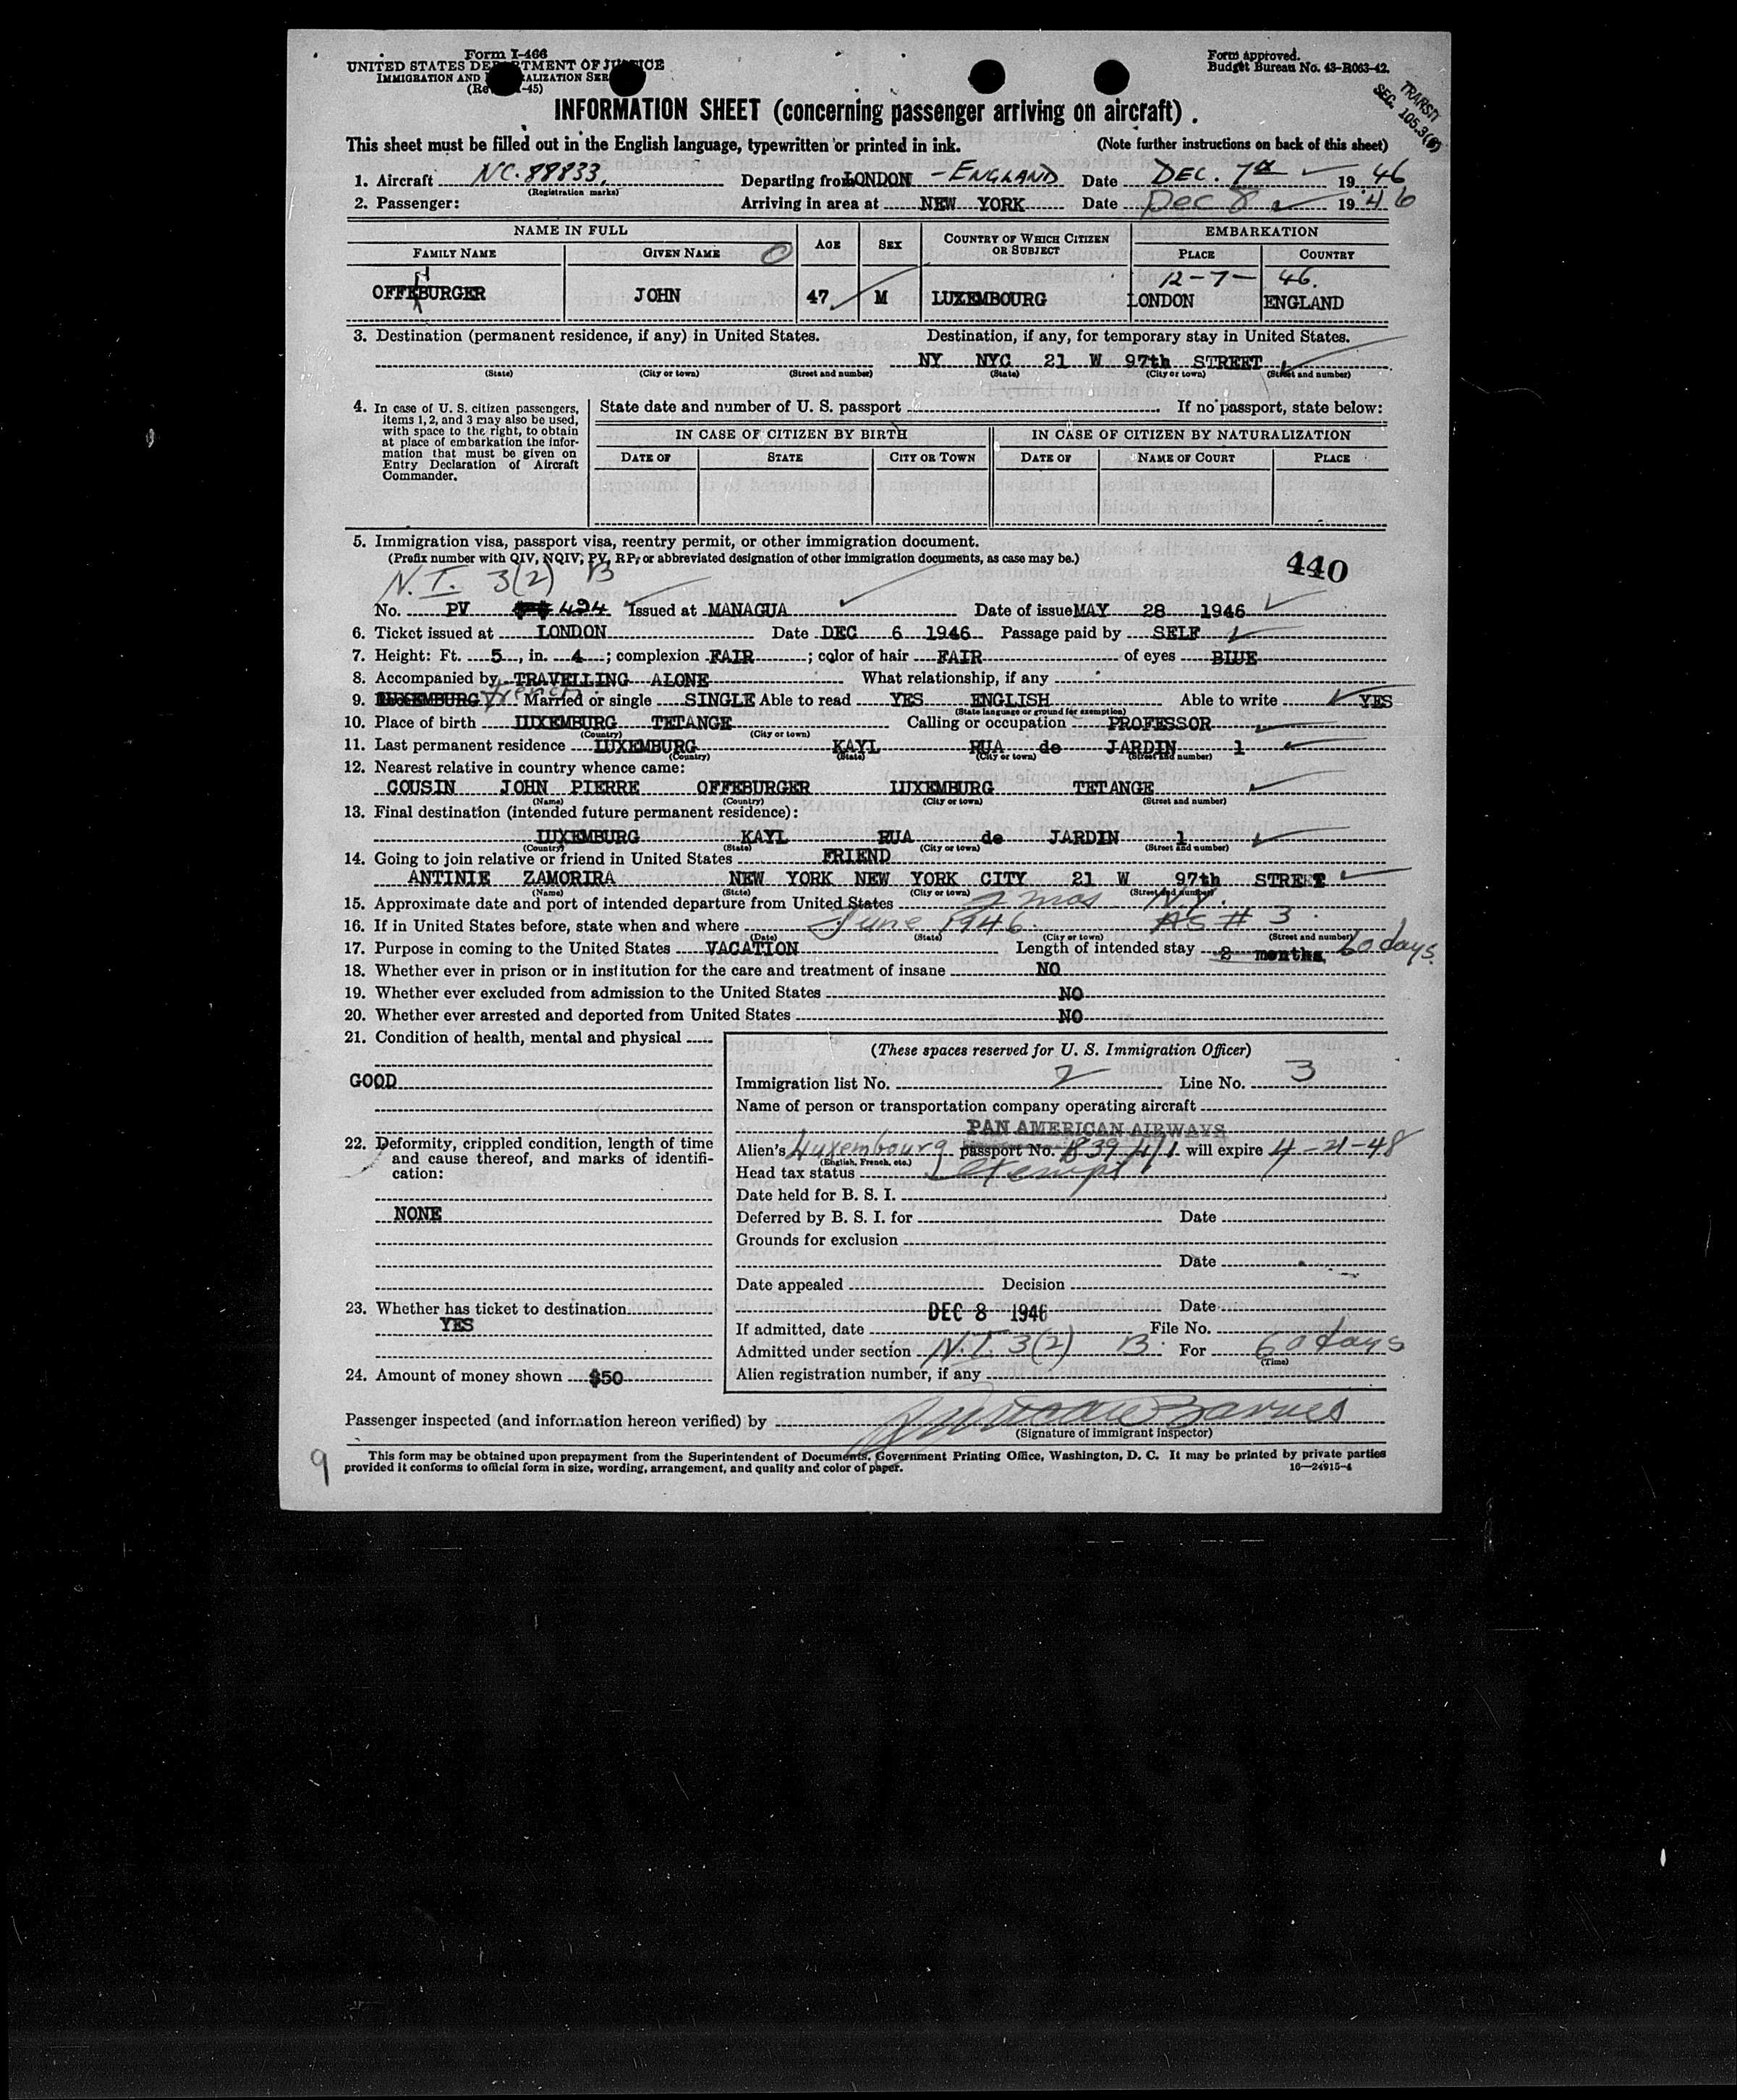 Form I-466
UNITED STATES DEPARTMENT OF JUSTICE
IMMIGRATION AND NATURALIZATION SER
(Re -45)
Form approved.
Budget Bureau No. 43-R063-42.
TRANSIT
SEC. 105.3
INFORMATION SHEET (concerning passenger arriving on aircraft)
This sheet must be filled out in the English language, typewritten or printed in ink. (Note further instructions on back of this sheet)
1. Aircraft NC. 88833. Departing from LONDON - ENGLAND Date DEC. 7th 19 46
(Registration marks)
2. Passenger: Arriving in area at NEW YORK Date Dec 8 19 46
NAME IN FULL AGE SEX COUNTRY OF WHICH CITIZEN OR SUBJECT EMBARKATION
FAMILY NAME GIVEN NAME PLACE COUNTRY
12-7-46.
OFFEBURGER JOHN 47 M LUXEMBOURG LONDON ENGLAND
3. Destination (permanent residence, if any) in United States. Destination, if any, for temporary stay in United States.
NY NYC 21 W 97th STREET
(State) (City or town) (Street and number) (State) (City or town) (Street and number)
4. In case of U. S. citizen passengers, items 1, 2, and 3 may also be used, with space to the right, to obtain at place of embarkation the information that must be given on Entry Declaration of Aircraft Commander.
State date and number of U. S. passport If no passport, state below:
IN CASE OF CITIZEN BY BIRTH IN CASE OF CITIZEN BY NATURALIZATION
DATE OF STATE CITY OR TOWN DATE OF NAME OF COURT PLACE
5. Immigration visa, passport visa, reentry permit, or other immigration document.
(Prefix number with QIV, NQIV, PV, RP, or abbreviated designation of other immigration documents, as case may be.)
440
N.I. 3(2) B
No. PV 424 Issued at MANAGUA Date of issue MAY 28 1946
6. Ticket issued at LONDON Date DEC 6 1946 Passage paid by SELF
7. Height: Ft. 5, in. 4; complexion FAIR; color of hair FAIR of eyes BLUE
8. Accompanied by TRAVELLING ALONE What relationship, if any
9. LUXEMBURG French Married or single SINGLE Able to read YES ENGLISH Able to write YES
(State language or ground for exemption)
10. Place of birth LUXEMBURG TETANGE Calling or occupation PROFESSOR
(Country) (City or town)
11. Last permanent residence LUXEMBURG KAYL RUA de JARDIN 1
(Country) (State) (City or town) (Street and number)
12. Nearest relative in country whence came:
COUSIN JOHN PIERRE OFFEBURGER LUXEMBURG TETANGE
(Name) (Country) (City or town) (Street and number)
13. Final destination (intended future permanent residence):
LUXEMBURG KAYL RUA de JARDIN 1
(Country) (State) (City or town) (Street and number)
14. Going to join relative or friend in United States FRIEND
ANTINIE ZAMORIRA NEW YORK NEW YORK CITY 21 W 97th STREET
(Name) (State) (City or town) (Street and number)
15. Approximate date and port of intended departure from United States 2 mos N.Y.
16. If in United States before, state when and where June 1946. AS # 3
(Date) (State) (City or town) (Street and number)
17. Purpose in coming to the United States VACATION Length of intended stay 2 months 60 days.
18. Whether ever in prison or in institution for the care and treatment of insane NO
19. Whether ever excluded from admission to the United States NO
20. Whether ever arrested and deported from United States NO
21. Condition of health, mental and physical
GOOD
22. Deformity, crippled condition, length of time and cause thereof, and marks of identification:
NONE
23. Whether has ticket to destination
YES
24. Amount of money shown $50
(These spaces reserved for U. S. Immigration Officer)
Immigration list No. 2 Line No. 3
Name of person or transportation company operating aircraft
PAN AMERICAN AIRWAYS
Alien's Luxembourg passport No. will expire 4-21-48
(English, French, etc.)
Head tax status exempt
Date held for B. S. I.
Deferred by B. S. I. for Date
Grounds for exclusion
Date
Date appealed Decision
Date
If admitted, date DEC 8 1946 File No.
Admitted under section N.I. 3(2) B For 60 days
(Time)
Alien registration number, if any
Passenger inspected (and information hereon verified) by
(Signature of immigrant inspector)
9
This form may be obtained upon prepayment from the Superintendent of Documents, Government Printing Office, Washington, D. C. It may be printed by private parties
provided it conforms to official form in size, wording, arrangement, and quality and color of paper. 16—24915-4